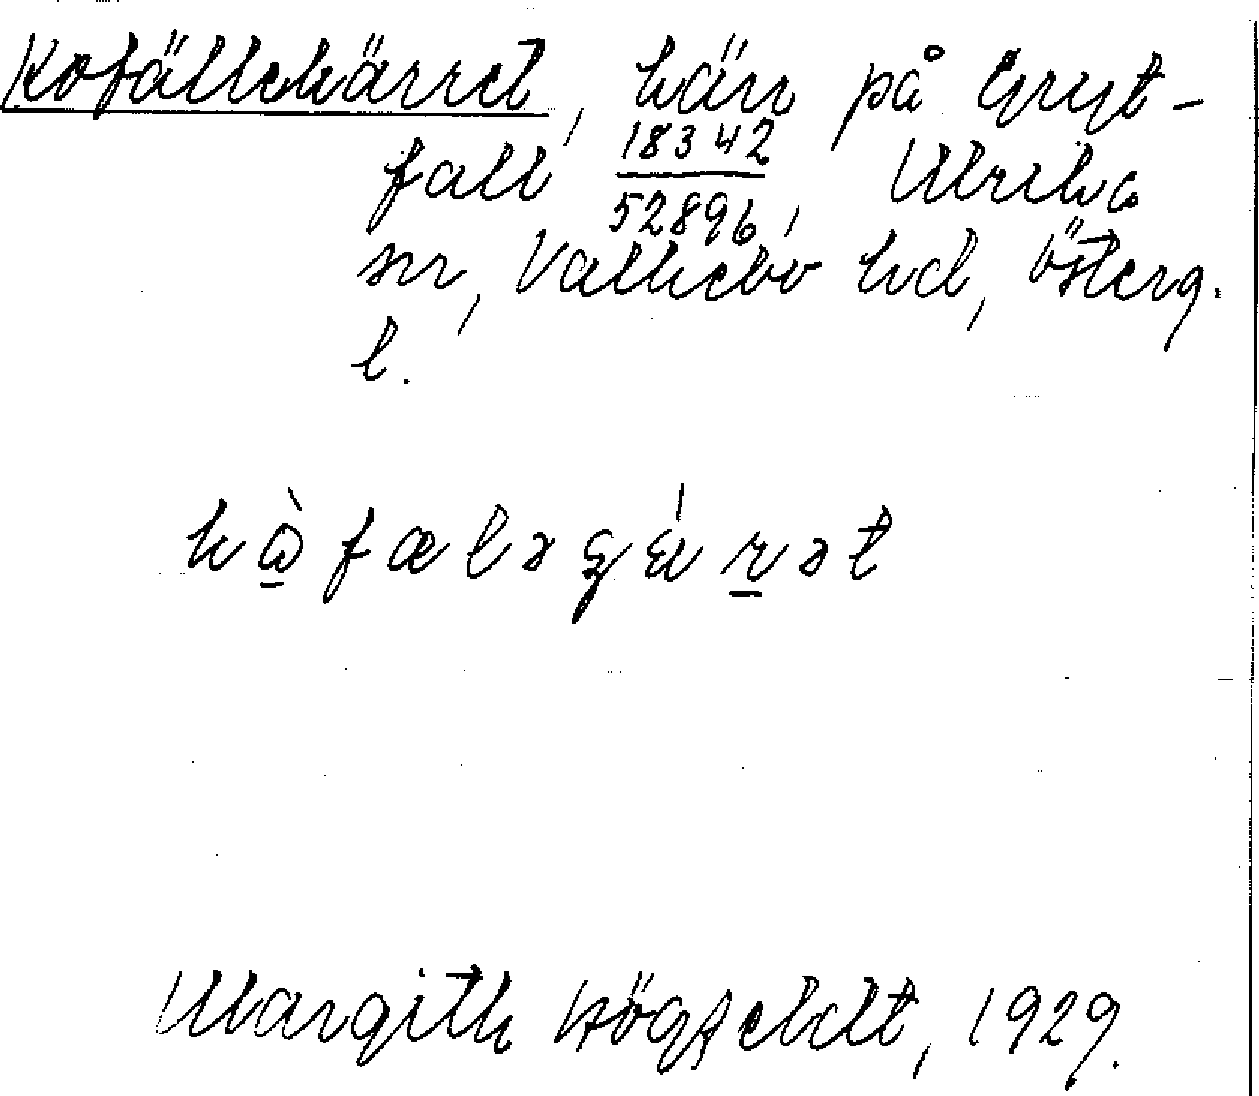 Kofällekärret, kärr på Gryt-
fall 18342/52896, Ulrika
sn, Valkebo hd, Österg.
l.
Margith Högfeldt, 1929.